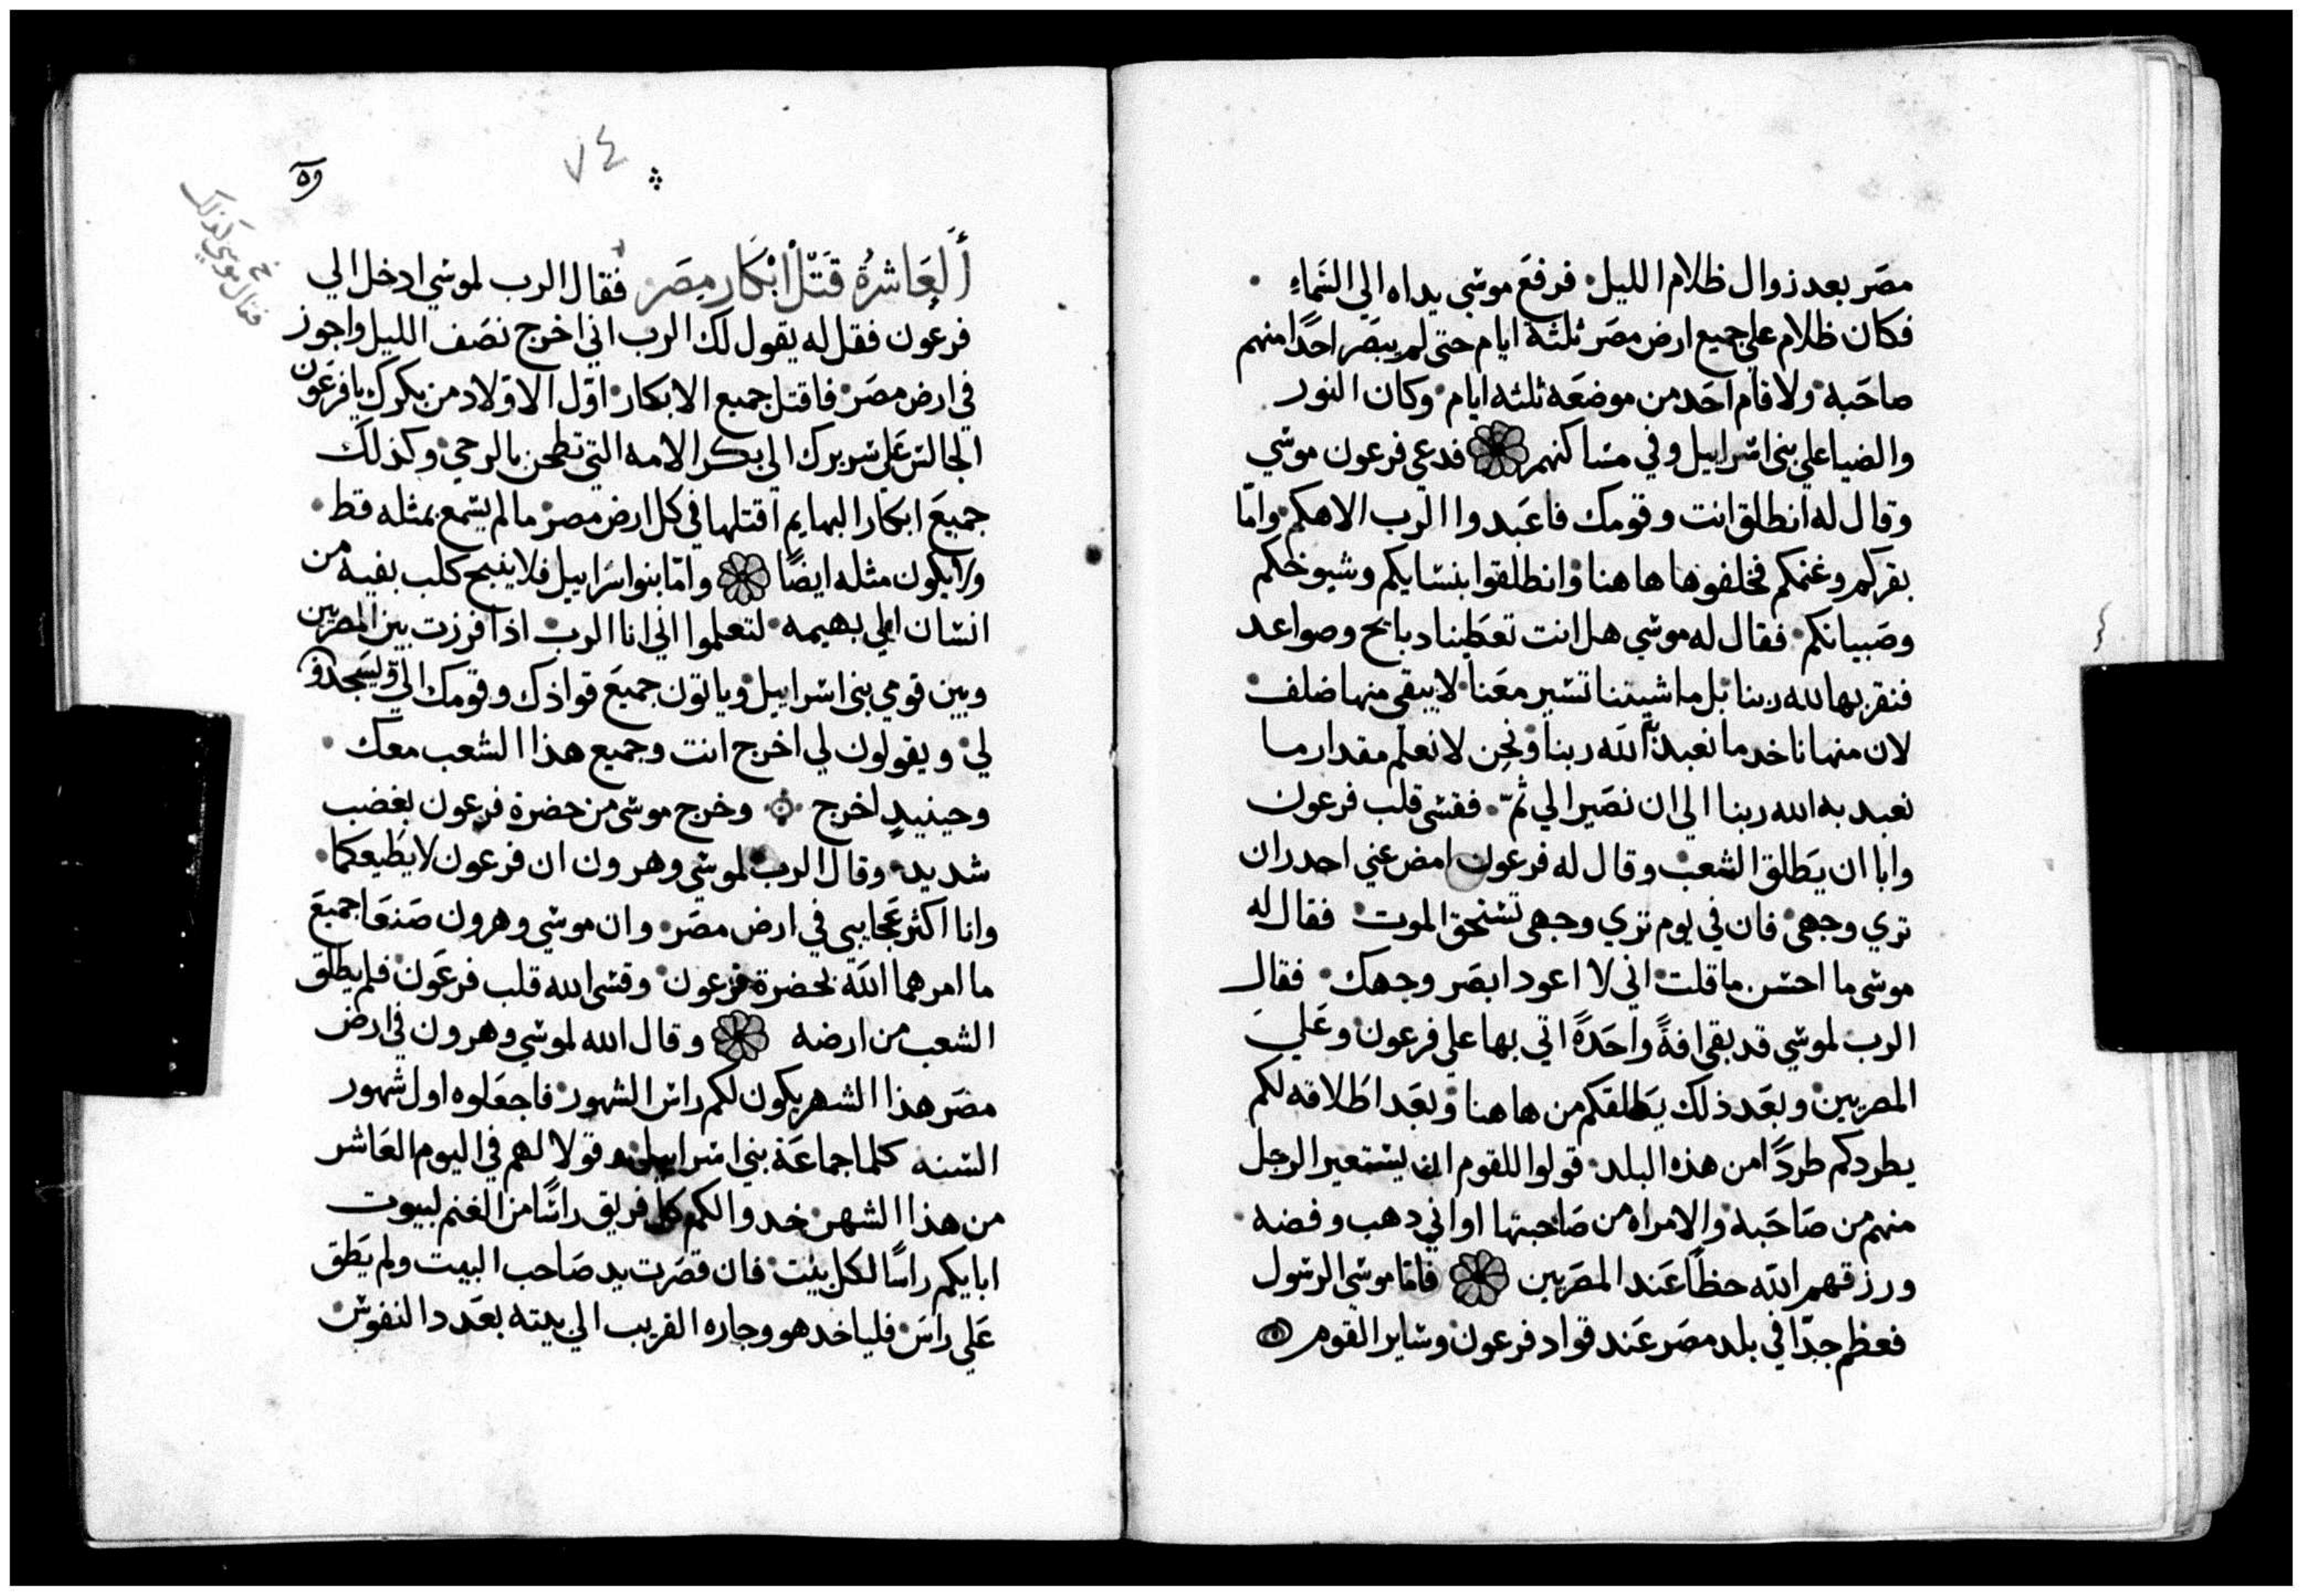 مصَر بعد زوال ظلام الليل • فرفعَ موسٰي يداه الي السَماءِ •
فكان ظلام علي جميع ارض مصَر ثلثة ايام حتي لم يبصَر احدًا منهم
صاحَبه • ولا قام احَد من موضعَه ثلثه ايام • وكان النور
والضيا علي بني اسراييل وفي مساكنهم فدعي فرعون موسي
وقال له انطلق انت وقومك فاعَبدوا الرب الاهكم • وامّا
بقركم وغنمكم فخلفوها هاهنا • وانطلقوا بنسايكم وشيوخكم
وصَبيانكم • فقال له موسي هل انت تعَطينا دبايح وصواعد
فنقربها لله ربنا • بل ماشيتنا تسير معَنا • لا يبقي منها ضلف •
لان منها ناخد ما نعبد به الله ربنا • ونحن لا نعلم مقدار ما
نعبد به الله ربنا الي ان نصَير الي ثمّ • فقسي قلب فرعون
وابا ان يَطلق الشعب • وقال له فرعون امض عني احدر ان
تري وجهي • فان في يوم تري وجهي تستحق الموت • فقال له
موسي ما احسن ما قلت • اني لا اعود ابصَر وجهك • فقال
الرب لموسي قد بقي افةً واحَدةً اتي بها علي فرعون • وعَلي
المصريين • وبعَد ذلك يَطلقكم من هاهنا • وبعَد اطَلاقه لكم
يطردكم طردًا من هذه البلد • قولوا للقوم ان يستعير الرجل
منهم من صَاحَبه • والامراه من صَاحبتها اواني دهب وفضه •
ورزقهم الله حظًا عَند المصَريين فاما موسي الرسول
فعظم جدًا في بلد مصَر عَند قواد فرعون • وساير القوم
٧٤
وه
فقال موسي
كذلك
اَلعَاشرةُ قَتلْ ابْكَار مِصَر فقال الرب لموسي ادخل الي
فرعون فقل له يقول لك الرب اني اخرج نصَف الليل واجوز
في ارض مصَر • فاقتل جميع الابكار • اوّل الاولاد من بكرك يا فرعَون
الجالس عَلي سريرك الي بكر الامه التي تطحن بالرحي • وكذلك
جميعَ ابكار البهايم اقتلها في كل ارض مصر • ما لم يسمع بمثله قط •
ولا يكون مثله ايضًا وامّا بنوا اسراييل فلا ينبح كلب بفيه من
انسان الي بهيمه • لتعلموا اني انا الرب • اذا فرزت بين المصريين
وبين قومي بني اسراييل • وياتون جميعَ قوادك وقومك الي ويسَجدو
لي • ويقولون لي اخرج انت وجميع هذا الشعب معك •
وحينيدٍ اخرج وخرج موسي من حضرة فرعون بغضب
شديد • وقال الرب لموسي وهرون ان فرعون لا يطَيعكما •
وانا اكثر عَجايبي في ارض مصَر • وان موسي وهرون صَنعَا جميعَ
ما امرهما الله بحضرة فرعون • وقسي الله قلب فرعَون • فلم يطلق
الشعب من ارضه وقال الله لموسي وهرون في ارض
مصَر هذا الشهر يكون لكم راس الشهور • فاجعَلوه اول شهور
السنه كلما جماعَة بني اسراييل • وقولا لهم في اليوم العَاشر
من هذا الشهر • خدوا لكم كل فريق راسًا من الغنم لبيوت
ابايكم راسًا لكل بيت • فان قصَرت يد صَاحب البيت ولم يَطق
عَلي راسَ • فلياخد هو وجاره القريب الي بيته بعَدد النفوس •